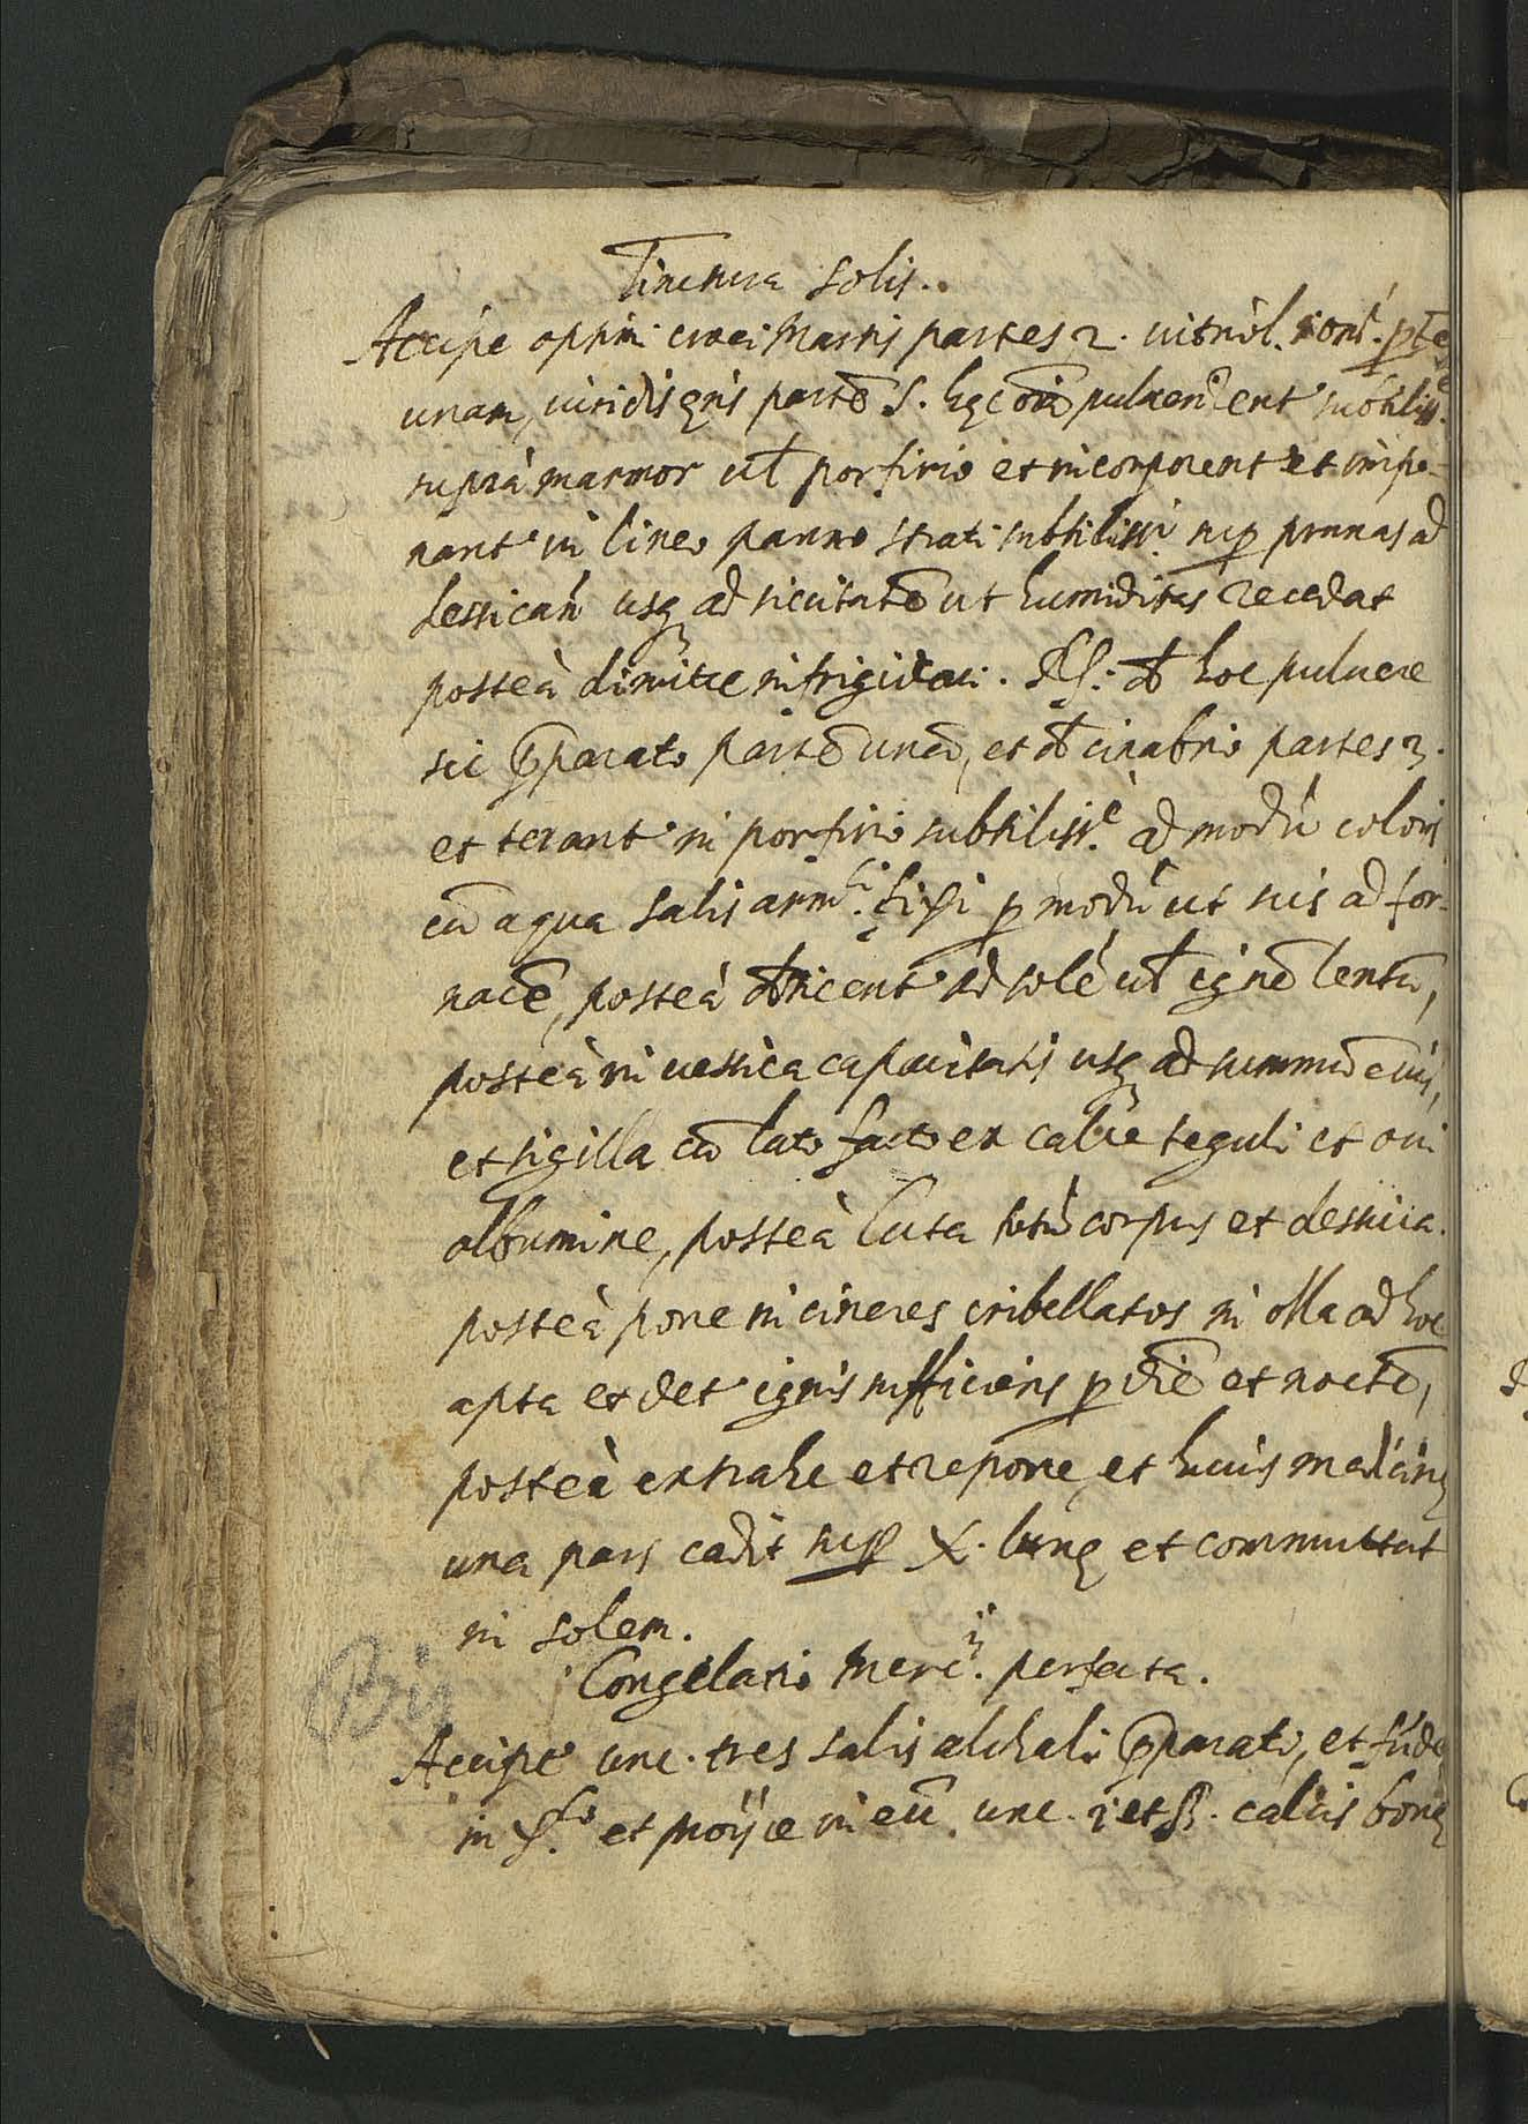 Tinctura Solis..
Accipe optimi croci Martis partes 2. uitriol. rom. ptē
unam, uiridis ęris partē S. hęc oīa pulueriᶻent subtiliss.ᵉ
suprà marmor ut̄ porfirio et incorporent et impo-
nant' in lineo panno strati subtilissi. sup prunas ad
dessicañ usq3 ad siccitatē ut humiditas recedat
posteà dimitte infrigidari. R: de hoc puluere
sic p̄parato partē unā, et de cinabrio partes 3.
et terant' in porfirio subtiliss.ᵉ ad modū coloris
cū aqua salis arm.ⁱ fixi p modū ut scis ad for-
nacē, posteà desicent' ad solē ut̄ ignē lentū,
posteà in uessica capacitatis usq3 ad summū eius,
et sigilla cū luto facto ex calce teguli et oui
albumine, posteà luta totū corpus et dessicca.
posteà pone in cineres cribellatos in olla ad hoc
apta et det' ignis sufficiens p diē et noctē,
posteà extrahe et repone, et huius medicinę
una pars cadit sup X. lunę et commuttat
in solem.
Congelatio Merc.ⁱⁱ perfecta.
Bis
Accipe unc. tres salis alchali p̄parati, et funde
in et proijce in eū unc. i et ß. calcis bonę